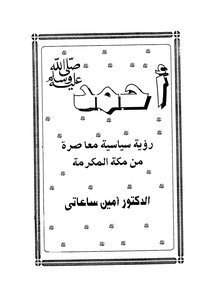 أحمد
صلى الله
عليه وسلم
رؤية سياسية معاصرة
من مكة المكرمة
الدكتور أمين ساعاتى